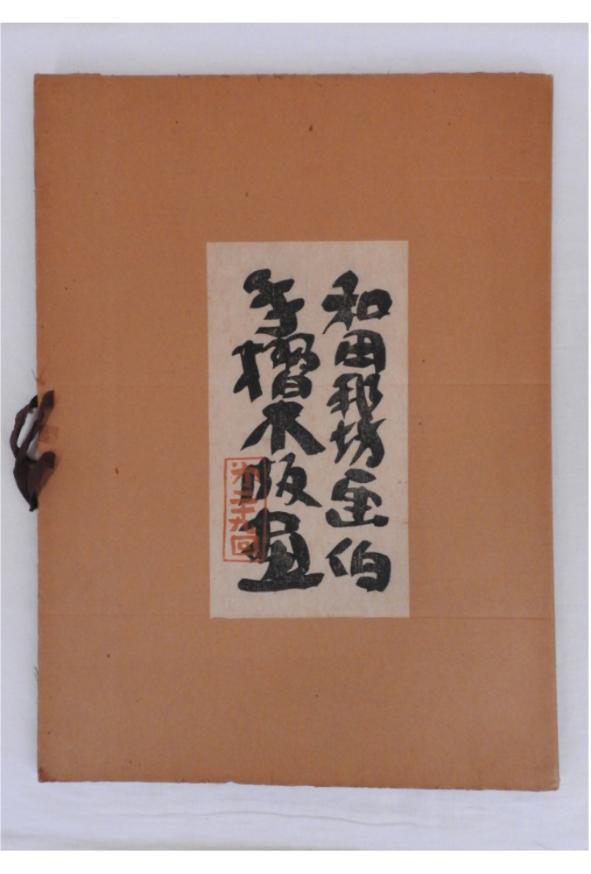 和田邦坊画伯
手摺木版画